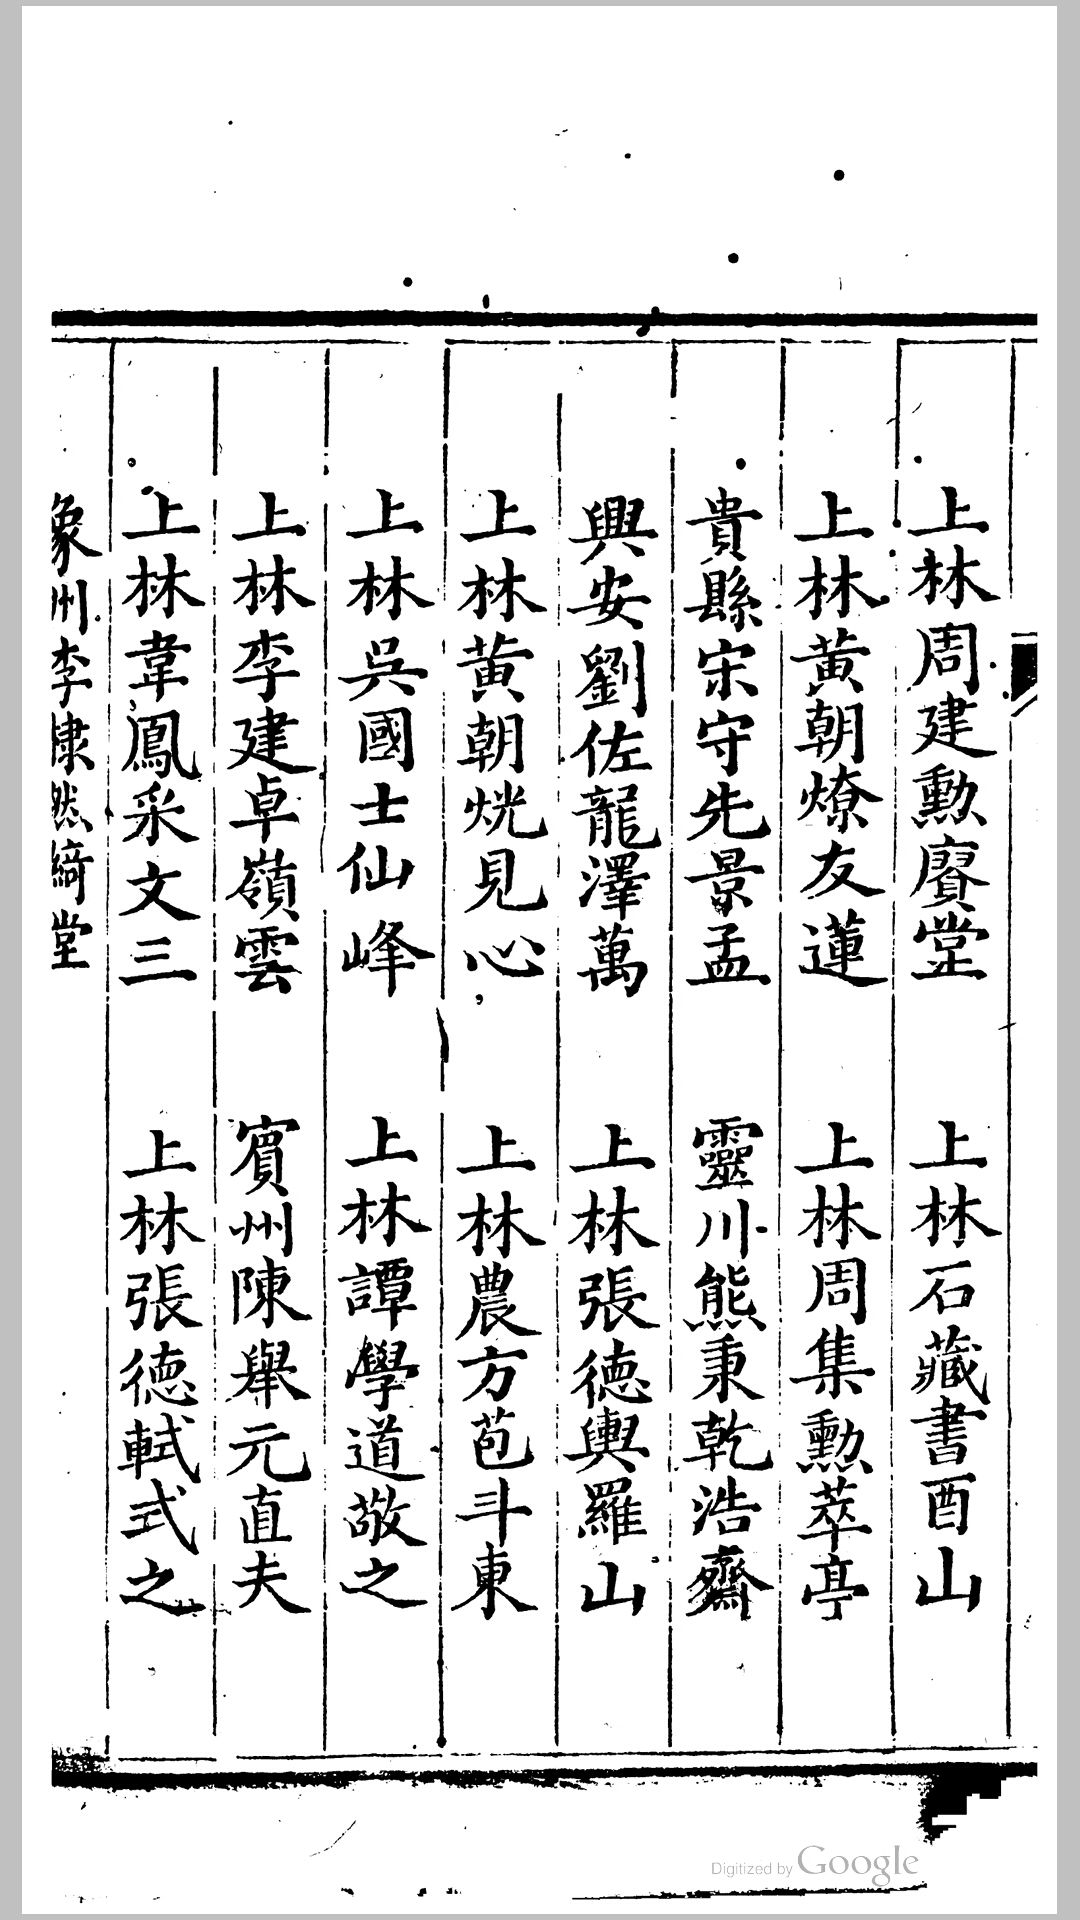 上林周建勳賡堂　上林石藏書酉山
上林黃朝燎友蓮　上林周集勳萃亭
貴縣宋守先景孟　靈川熊秉乾浩齋
興安劉佐龍澤萬　上林張德輿羅山
上林黃朝烑見心　上林農方苞斗東
上林吳國士仙峰　上林譚學道敬之
上林李建卓嶺雲　賓州陳舉元直夫
上林韋鳳采文三　上林張德軾式之
象州李棣然綺堂
Digitized by Google